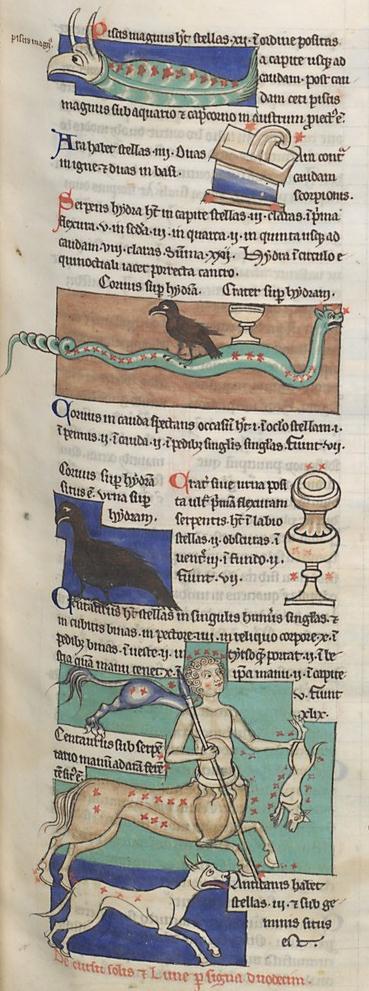 piscis magn⁹
Piscis magnus hꝫ stellas xii. ĩ ordine positas
a capite usq; ad
caudam. post cau
dam ceti piscis
magnus sub aquario & capcorno in austrum
Ara habet stellas .iiii. Duas
in igne. & duas in basi.
Ara cont̃
caudam
scorpionis.
Serpens hydra hꝫ in capite stellas .iii. claras. ĩ p̃ma
flexura .v. in scda .iii. in quarta .ii. in quinta usq; ad
caudam .viii. claras. Hydra ĩ circulo e
quinoctiali iacet porrecta cancro.
Coruus sup hydrã. Crater sup hydram.
Coruus in cauda spectans occasũ hꝫ .i. ĩ oclo stellam .i.
ĩ pennis .ii. ĩ cauda .ii. ĩ pedibꝫ singlis singlas. fiunt .vii.
Coruus sup hydrã
situs ẽ. urna sup
hydram.
Crat̃ siue urna posi
ta ult̃ p̃mã flexuram
serpentis. hꝫ ĩ labio
stellas .ii. obscuras. ĩ
uent̃ .ii. ĩ fundo .ii.
fiunt .vii.
hꝫ stellas in singulis hum̃is singlas. &
in cubitis binas. in pectore .iiii. in reliquo corpore .x. ĩ
pedibꝫ binas. ĩ ueste .ii. in portat .ii. ĩ be
quã manu tenet .x. ĩ ipa manu .ii. ĩ capite
.v. fiunt
.xlix.
Centaurus sub serpẽ
Anticanis habet
stellas .iii. & sub ge
minis situs
est.
De cursu solis & Lune p signa duodecim